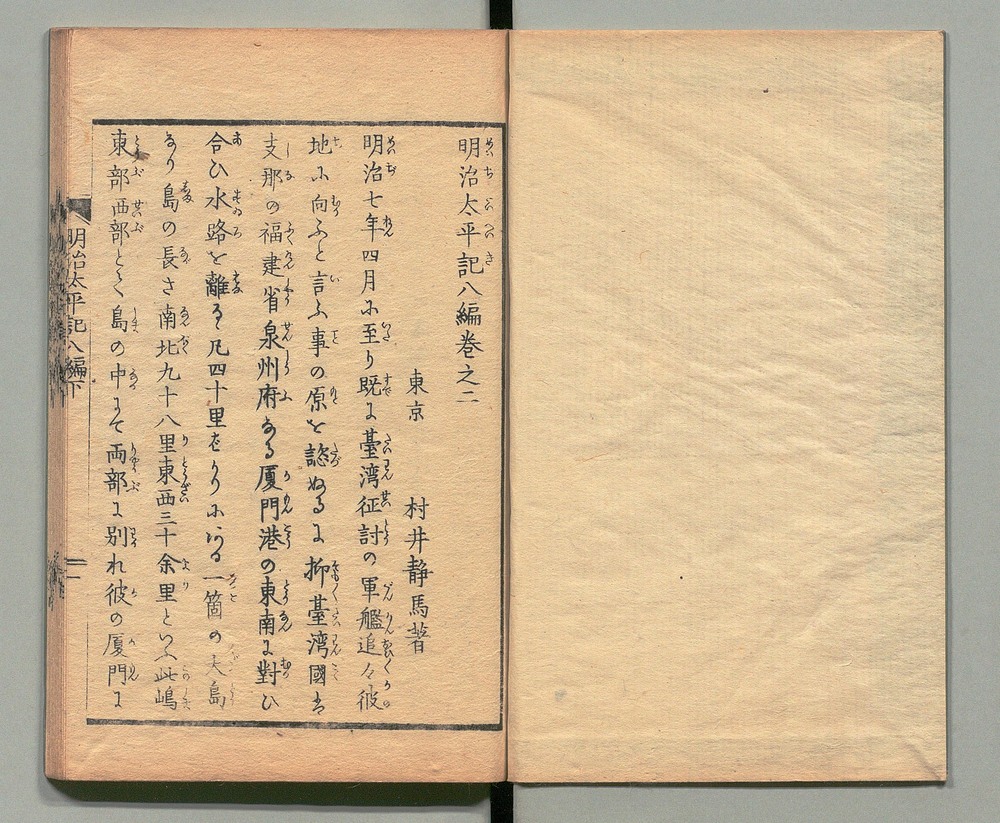 明治太平記八編巻之二
東京　村井静馬著
明治七年四月に至り既に臺湾征討の軍艦追々彼
地に向ふと言ふ事の原を認ぬるに抑臺湾國は
支那の福建省泉州府なる厦門港の東南に對ひ
合ひ水路を離るゝ凡四十里をかりにいる一箇の大島
なり島の長さ南北九十八里東西三十余里といふ此嶋
東部西部とて島の中にて両部に別れ彼の厦門に
明治太平記八編下
一